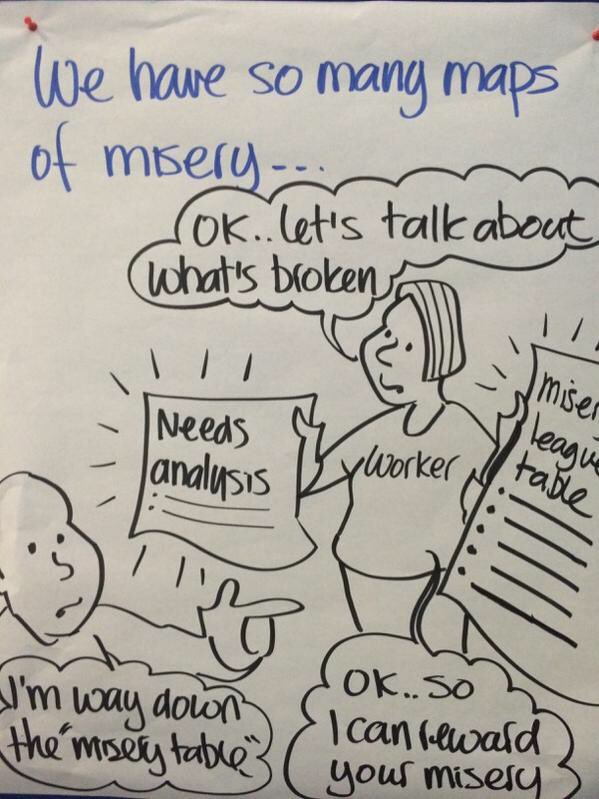 We have so many maps
of misery...
OK.. let's talk about
what's broken
Needs
analysis
Worker
miser
league
table
I'm way down
the "misery table"
OK.. so
I can reward
your misery